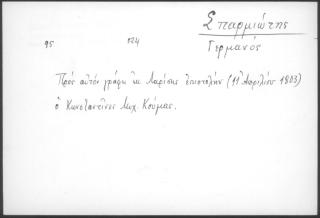 Σπαρμιώτης
95 024
Γερμανός
Πρός αὐτόν γράφει ἐκ Λαρίσης ἐπιστολήν (11 Ἀπριλίου 1803)
ὁ Κωνσταντῖνος Μιχ. Κούμας.